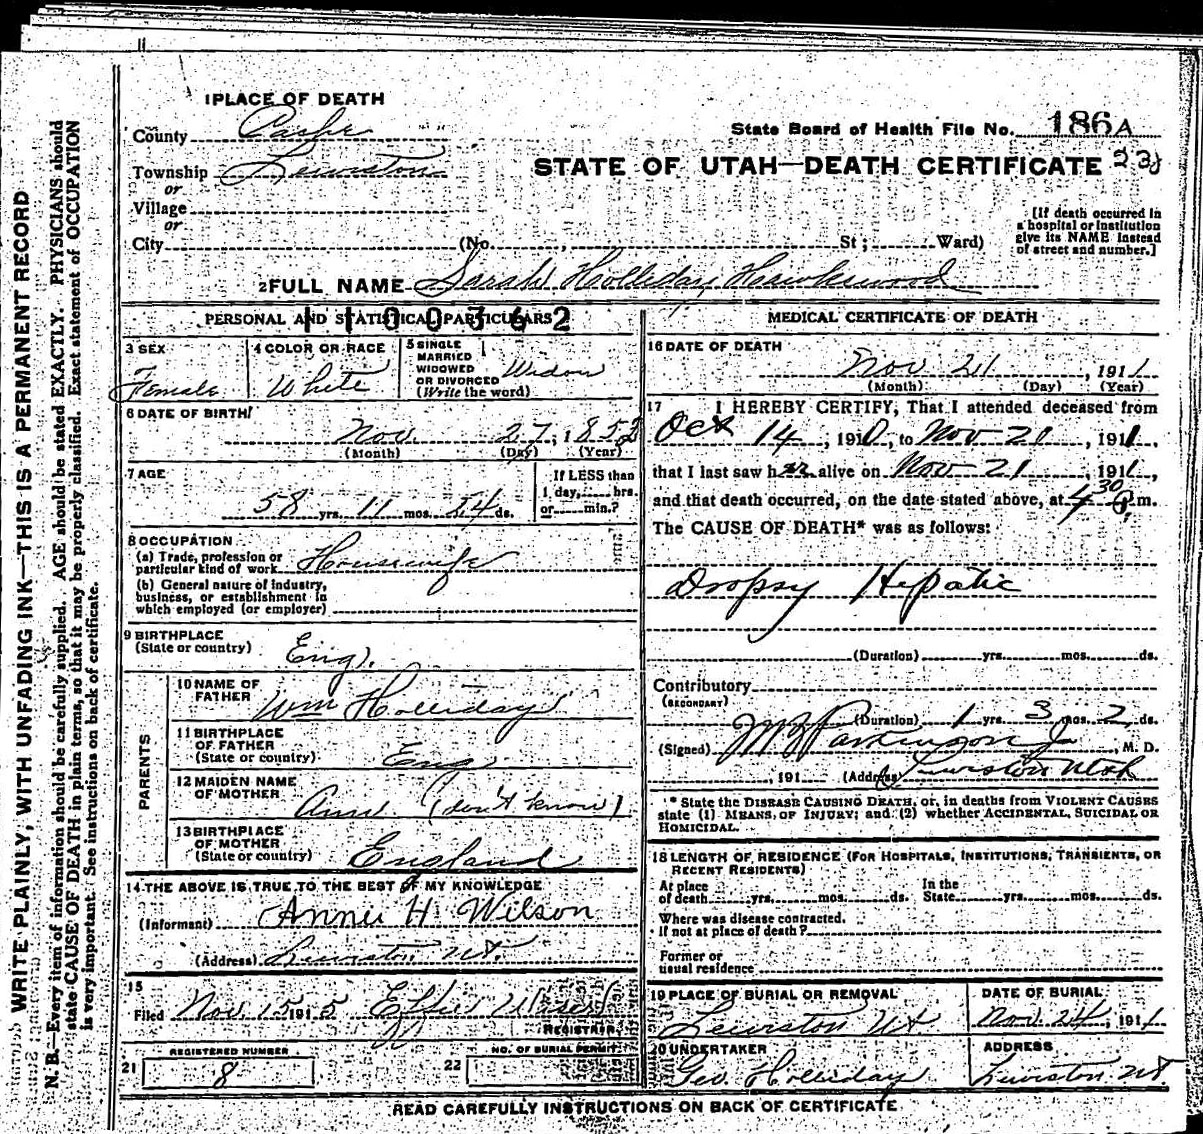 WRITE PLAINLY, WITH UNFADING INK—THIS IS A PERMANENT RECORD
N. B.—Every item of information should be carefully supplied. AGE should be stated EXACTLY. PHYSICIANS should
state CAUSE OF DEATH in plain terms, so that it may be properly classified. Exact statement of OCCUPATION
is very important. See instructions on back of certificate.
1 PLACE OF DEATH
County Cache
State Board of Health File No. 186A
Township Lewiston
STATE OF UTAH—DEATH CERTIFICATE
or
Village
or
City (No. , St ; Ward)
[If death occurred in
a hospital or institution
give its NAME instead
of street and number.]
2 FULL NAME Sarah Holliday Hawkswood
1100362
PERSONAL AND STATISTICAL PARTICULARS
3 SEX
Female
4 COLOR OR RACE
White
5 SINGLE
MARRIED
WIDOWED
OR DIVORCED
(Write the word)
Widow
6 DATE OF BIRTH
Nov. 27, 1852
(Month) (Day) (Year)
7 AGE
58 yrs. 11 mos. 24 ds.
If LESS than
1 day, hrs.
or min.?
8 OCCUPATION
(a) Trade, profession or
particular kind of work Housewife
(b) General nature of industry,
business, or establishment in
which employed (or employer)
9 BIRTHPLACE
(State or country) Eng.
PARENTS
10 NAME OF
FATHER Wm Holliday
11 BIRTHPLACE
OF FATHER
(State or country) Eng
12 MAIDEN NAME
OF MOTHER Ann (don't know)
13 BIRTHPLACE
OF MOTHER
(State or country) England
14 THE ABOVE IS TRUE TO THE BEST OF MY KNOWLEDGE
(Informant) Annie H Wilson
(Address) Lewiston Ut.
15
Filed Nov. 15 1915 Effie
REGISTRAR
REGISTERED NUMBER
21 8
NO. OF BURIAL PERMIT
22
MEDICAL CERTIFICATE OF DEATH
16 DATE OF DEATH
Nov 21, 1911
(Month) (Day) (Year)
17 I HEREBY CERTIFY, That I attended deceased from
Oct 14, 1910, to Nov-21, 1911,
that I last saw her alive on Nov-21, 1911,
and that death occurred, on the date stated above, at 4 30 P.m.
The CAUSE OF DEATH* was as follows:
Dropsy Hepatic
(Duration) yrs. mos. ds.
Contributory
(SECONDARY)
(Duration) 1 yrs. 3 mos. 2 ds.
(Signed) Parkinson Jr, M. D.
, 191 (Address) Lewiston Utah
* State the DISEASE CAUSING DEATH, or, in deaths from VIOLENT CAUSES
state (1) MEANS OF INJURY; and (2) whether ACCIDENTAL, SUICIDAL OR
HOMICIDAL.
18 LENGTH OF RESIDENCE (FOR HOSPITALS, INSTITUTIONS, TRANSIENTS, OR
RECENT RESIDENTS)
At place
of death yrs. mos. ds.
In the
State yrs. mos. ds.
Where was disease contracted.
If not at place of death?
Former or
usual residence
19 PLACE OF BURIAL OR REMOVAL
Lewiston Ut
DATE OF BURIAL
Nov. 24, 1911
20 UNDERTAKER
Geo. Holliday
ADDRESS
Lewiston Ut
READ CAREFULLY INSTRUCTIONS ON BACK OF CERTIFICATE